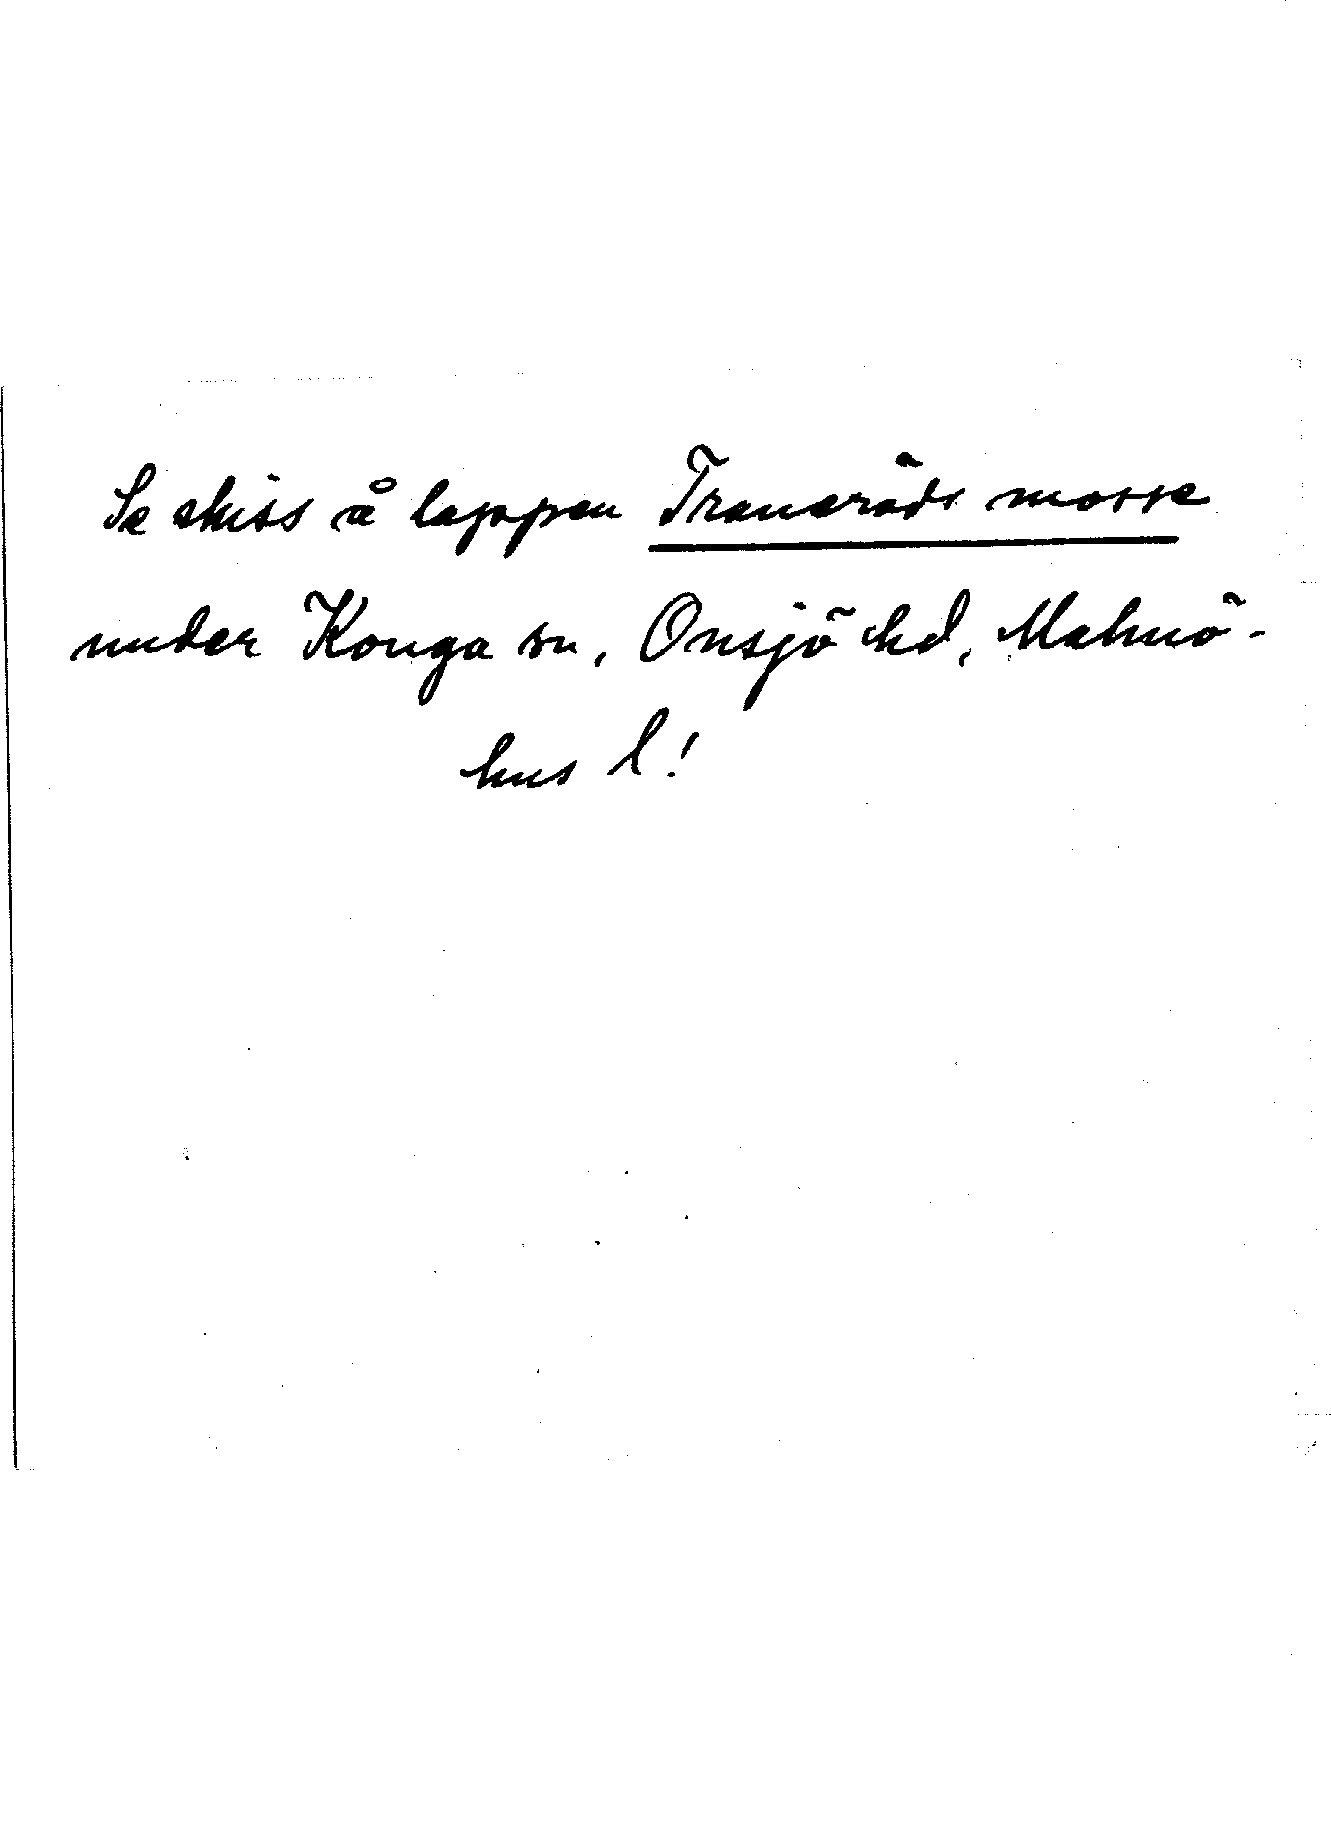 Se skiss å lappen Traneröds mosse
under Konga sn, Onsjö hd, Malmö-
hus l!